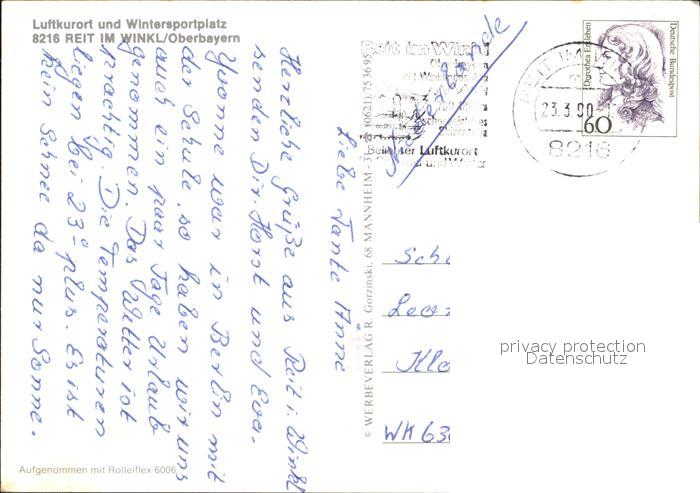 Luftkurort und Wintersportplatz
8216 REIT IM WINKL/Oberbayern
Liebe Tante Änne
Herzliche Grüße aus Reit i. Winkl
senden Dir. Horst und Eva.
Yvonne war in Berlin mit
der Schule, so haben wir uns
auch ein paar Tage Urlaub
genommen. Das Wetter ist
prächtig. Die Temperaturen
liegen bei 23° plus. Es ist
kein Schnee da nur Sonne.
Aufgenommen mit Rolleiflex 6006
© WERBEVERLAG R. Gorzinski, 68 MANNHEIM - 31 (0621) 753695
Reit im Winkl
Beliebter Luftkurort
und Winter
REIT IM
23.3.90
8216
Dorothea Erxleben
Deutsche Bundespost
60
Sch
Leer
Klo
WK 630
privacy protection
Datenschutz